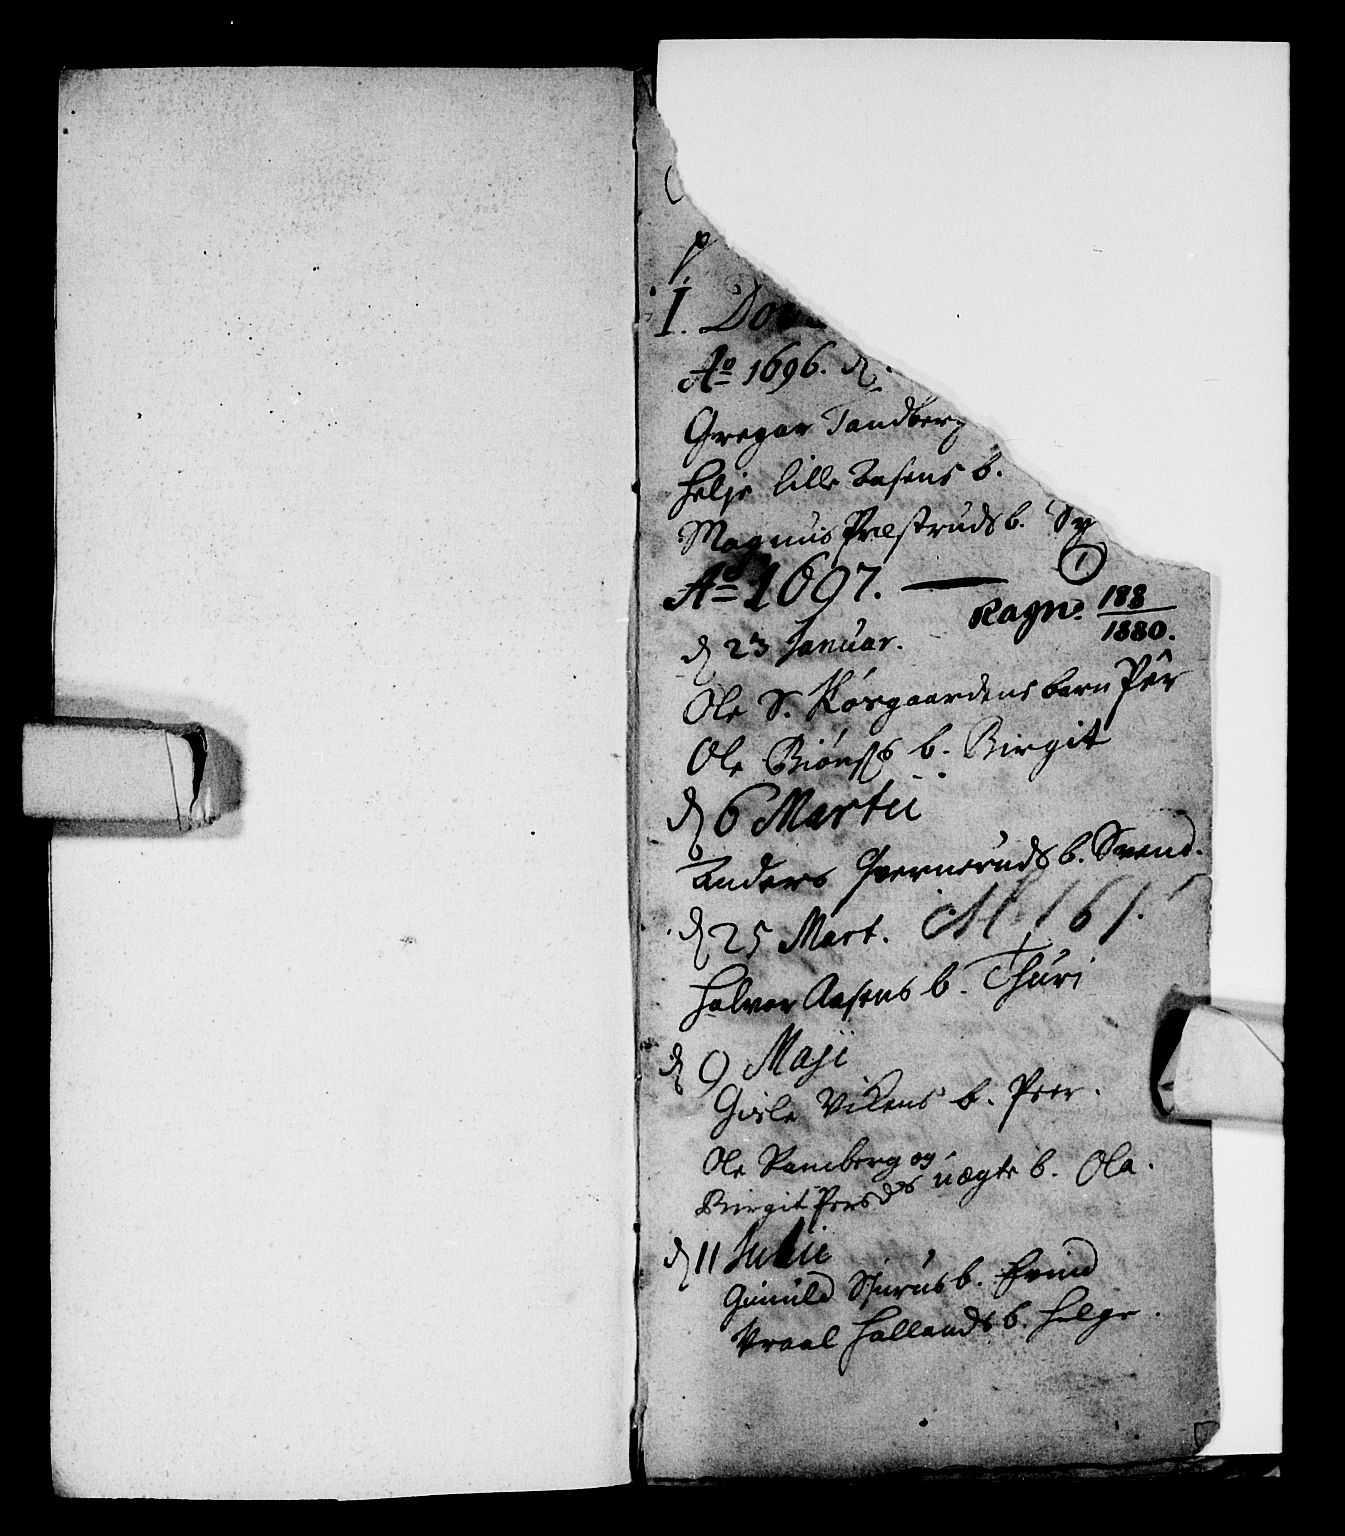 p
I. Do
Ao 1696. d.
Gregar Tandberg
Helje lille Aasens b.
Magnus Præstruds b. Sy
1
Ao 1697.
Ragn. 188/1880.
d 23 Januar.
Ole S. Korsgaardens barn Pêr
Ole Biørns b. Birgit
d 6 Martii
Anders b. Svend.
d 25 Mart. M. 161.
Halvor Aasens b. Thuri
d 9 Maji
Gisle Vikens b. Peer.
Ole Ramberg og
Birgit Persds uægte b. Ola.
d 11 Julii
Gunuld b. Evind
Wraal Hallands b. Helge.